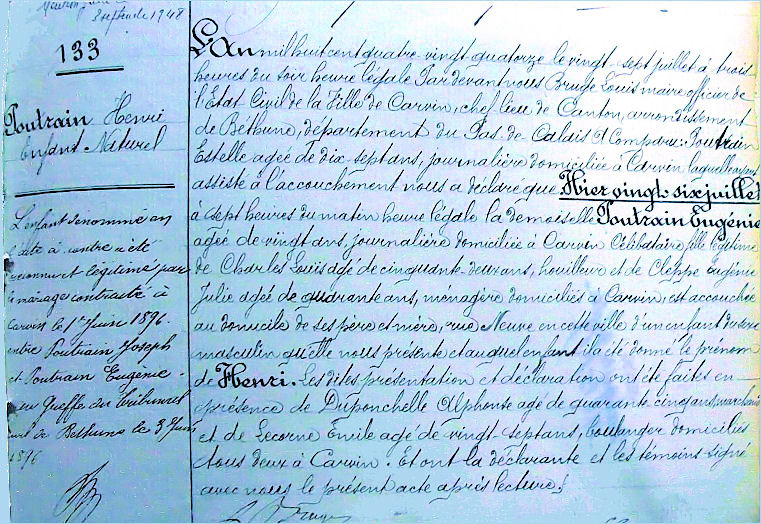 3 septembre 1948
133
Poutrain Henri
Enfant Naturel
L'enfant dénommé en
l'acte ci-contre a été
reconnu et légitimé par
le mariage contracté à
Carvin le 1er Juin 1896.
entre Poutrain Joseph
et Poutrain Eugénie.
au Greffe du Tribunal
civil de Béthune le 3 Juin
1896
L'An mil huit cent quatre vingt quatorze le vingt sept juillet à trois
heures du soir heure légale Par devant nous Bruge Louis maire officier de
l'Etat Civil de la Ville de Carvin, chef lieu de Canton, arrondissement
de Béthune, département du Pas de Calais A Comparu: Poutrain
Estelle agée de dix-sept ans, journalière domiciliée à Carvin laquelle ayant
assisté à l'accouchement nous a déclaré que Hier vingt-six juillet
à sept heures du matin heure légale la demoiselle Poutrain Eugénie
agée de vingt ans, journalière domiciliée à Carvin Célibataire, fille légitime
de Charles Louis agé de cinquante-deux ans, houilleur et de Cleppe Eugénie
Julie agée de quarante ans, ménagère domiciliés à Carvin, est accouchée
au domicile de ses père et mère, rue Neuve en cette ville d'un enfant du sexe
masculin qu'elle nous présente et auquel enfant il a été donné le prénom
de Henri. Les dites présentation et déclaration ont été faites en
présence de Duponchelle Alphonse agé de quarante cinq ans, marchand
et de Lecorne Emile agé de vingt-sept ans, boulanger domiciliés
tous deux à Carvin. Et ont la déclarante et les témoins signé
avec nous le présent acte après lecture.